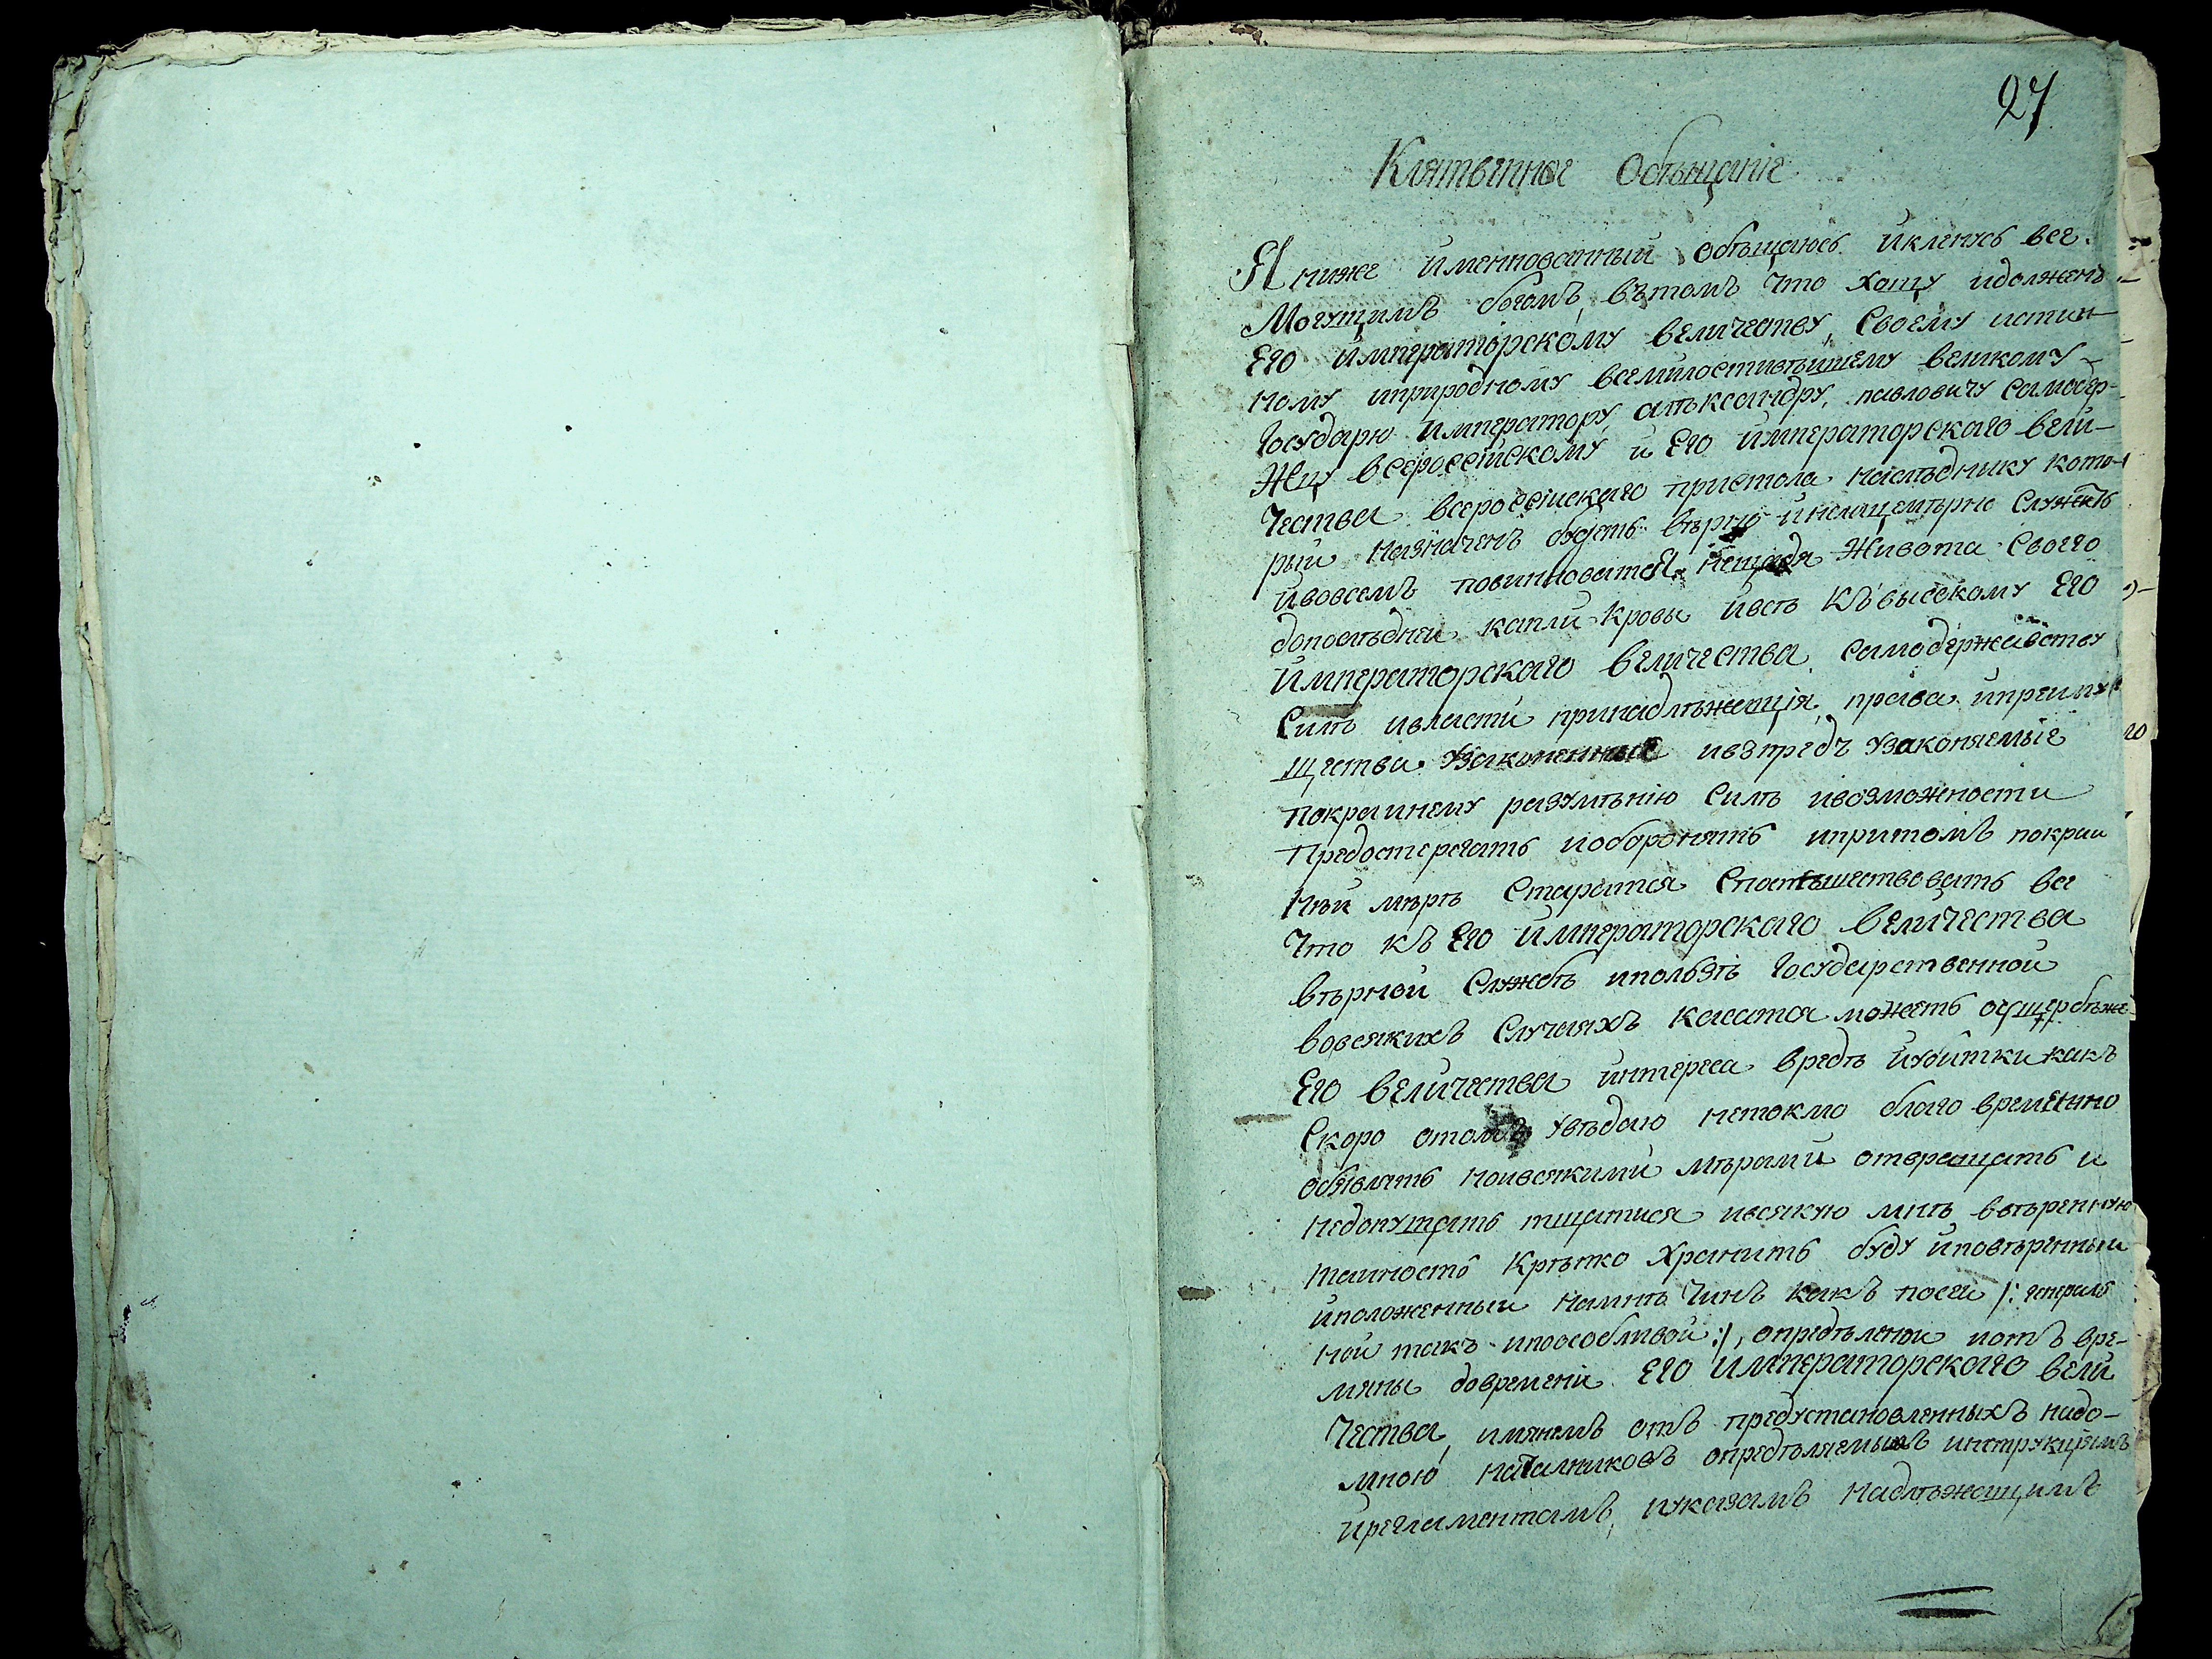 27
Клятвенное Обѣщаніе
Я ниже имѣннованный обѣщаюсь икленусь все
Могущимъ богомъ, вътомъ что хощу идолженъ
Его императорскому величеству, Своему истин-
ному иприродному всемилостивѣишему великому
Государю императору, алѣксандру, павловичу Самодер-
Жцу всеросеискому и Его императорскаго вели-
Чества всеросеискаго пристола наслѣднику кото-
рыи назначенъ будетъ вѣрно инелицемѣрно Служить
ивовсемъ повинноватся, нещадя Живота Своего
допослѣднеи капли Кровы ивсѣ Къвысокому Его
Императорскаго величества Самодержавству
Силѣ ивласти принадлѣжащія, права ипреиму
щества Узаконенные ивзпредъ узаконяемые
покраинему разумѣнію Силѣ ивозможности
Предостерегать иоборонять ипритомъ покраи
ней мѣрѣ Старатся Споспѣшествовать все
Что къ Его императорскаго величества
вѣрной Службѣ ипользѣ Государственной
вовсякихъ Случаяхъ касатся можетъ оущербѣже
Его величества интереса вредѣ иубытки какъ
Скоро отомъ увѣдаю нетокмо благо временно
обявлять ноивсякими мѣрами отвращать и
недопущать тщатися ивсякую мнѣ ввѣренную
таиность Крѣпко Хранить буду иповѣренныи
иположенныи намнѣ Чинъ какъ посеи /: генераль
ной такъ ипоособливой :/, опредѣленои иотъ вре-
мяны довремени Его императорскаго вели
Чества, имянемъ отъ предустановленныхъ надо-
мною начальниковъ опредѣляемымъ инструкціямъ
ирегламентамъ, иуказамъ надлѣжащимъ